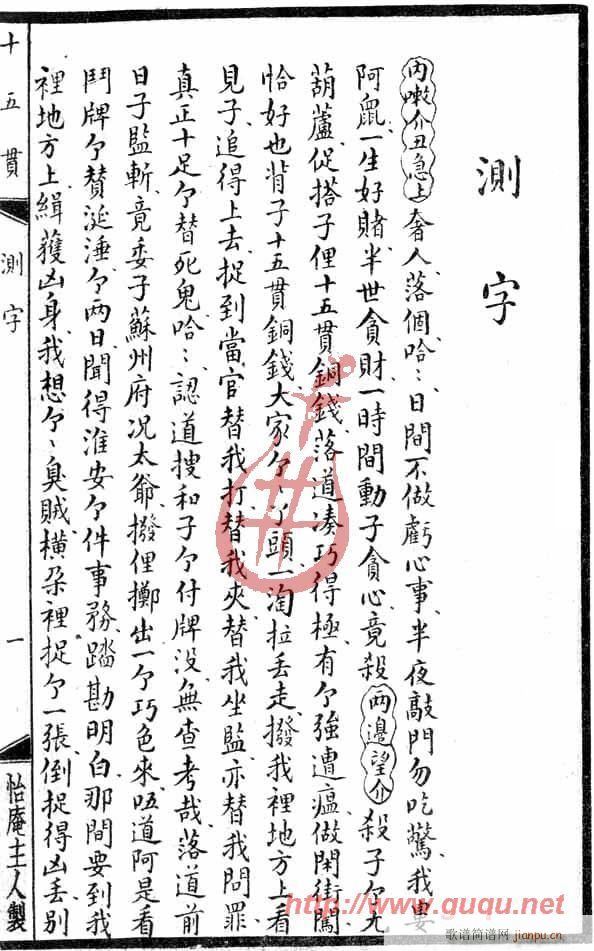 測字
內嗽介丑急上奢人落個哈〻日間不做虧心事半夜敲門勿吃驚我婁
阿鼠一生好賭半世貪財一時間動子貪心竟殺兩邊望介殺子ケ尤
葫蘆促搭子俚十五貫銅錢落道湊巧得極有ケ強遭瘟做閑街闖
恰好也背子十五貫銅錢大家ケ〻丫頭一淘拉丟走撥我裡地方上看
見子追得上去捉到當官替我打替我夾替我坐監亦替我問罪
真正十足ケ替死鬼哈〻認道搜和子ケ付牌没無查考哉落道前
日子監斬竟委子蘇州府况太爺撥俚擲出一ケ巧色來唔道阿是看
鬥牌ケ贊涎唾ケ两日聞得淮安ケ件事務踏勘明白那間要到我
裡地方上緝獲凶身我想ケ〻臭賊橫朶裡捉ケ一張倒捉得凶丢別
十五貫
測字
一
怡庵主人製
www.ququ.net
歌谱简谱网
jianpu.cn